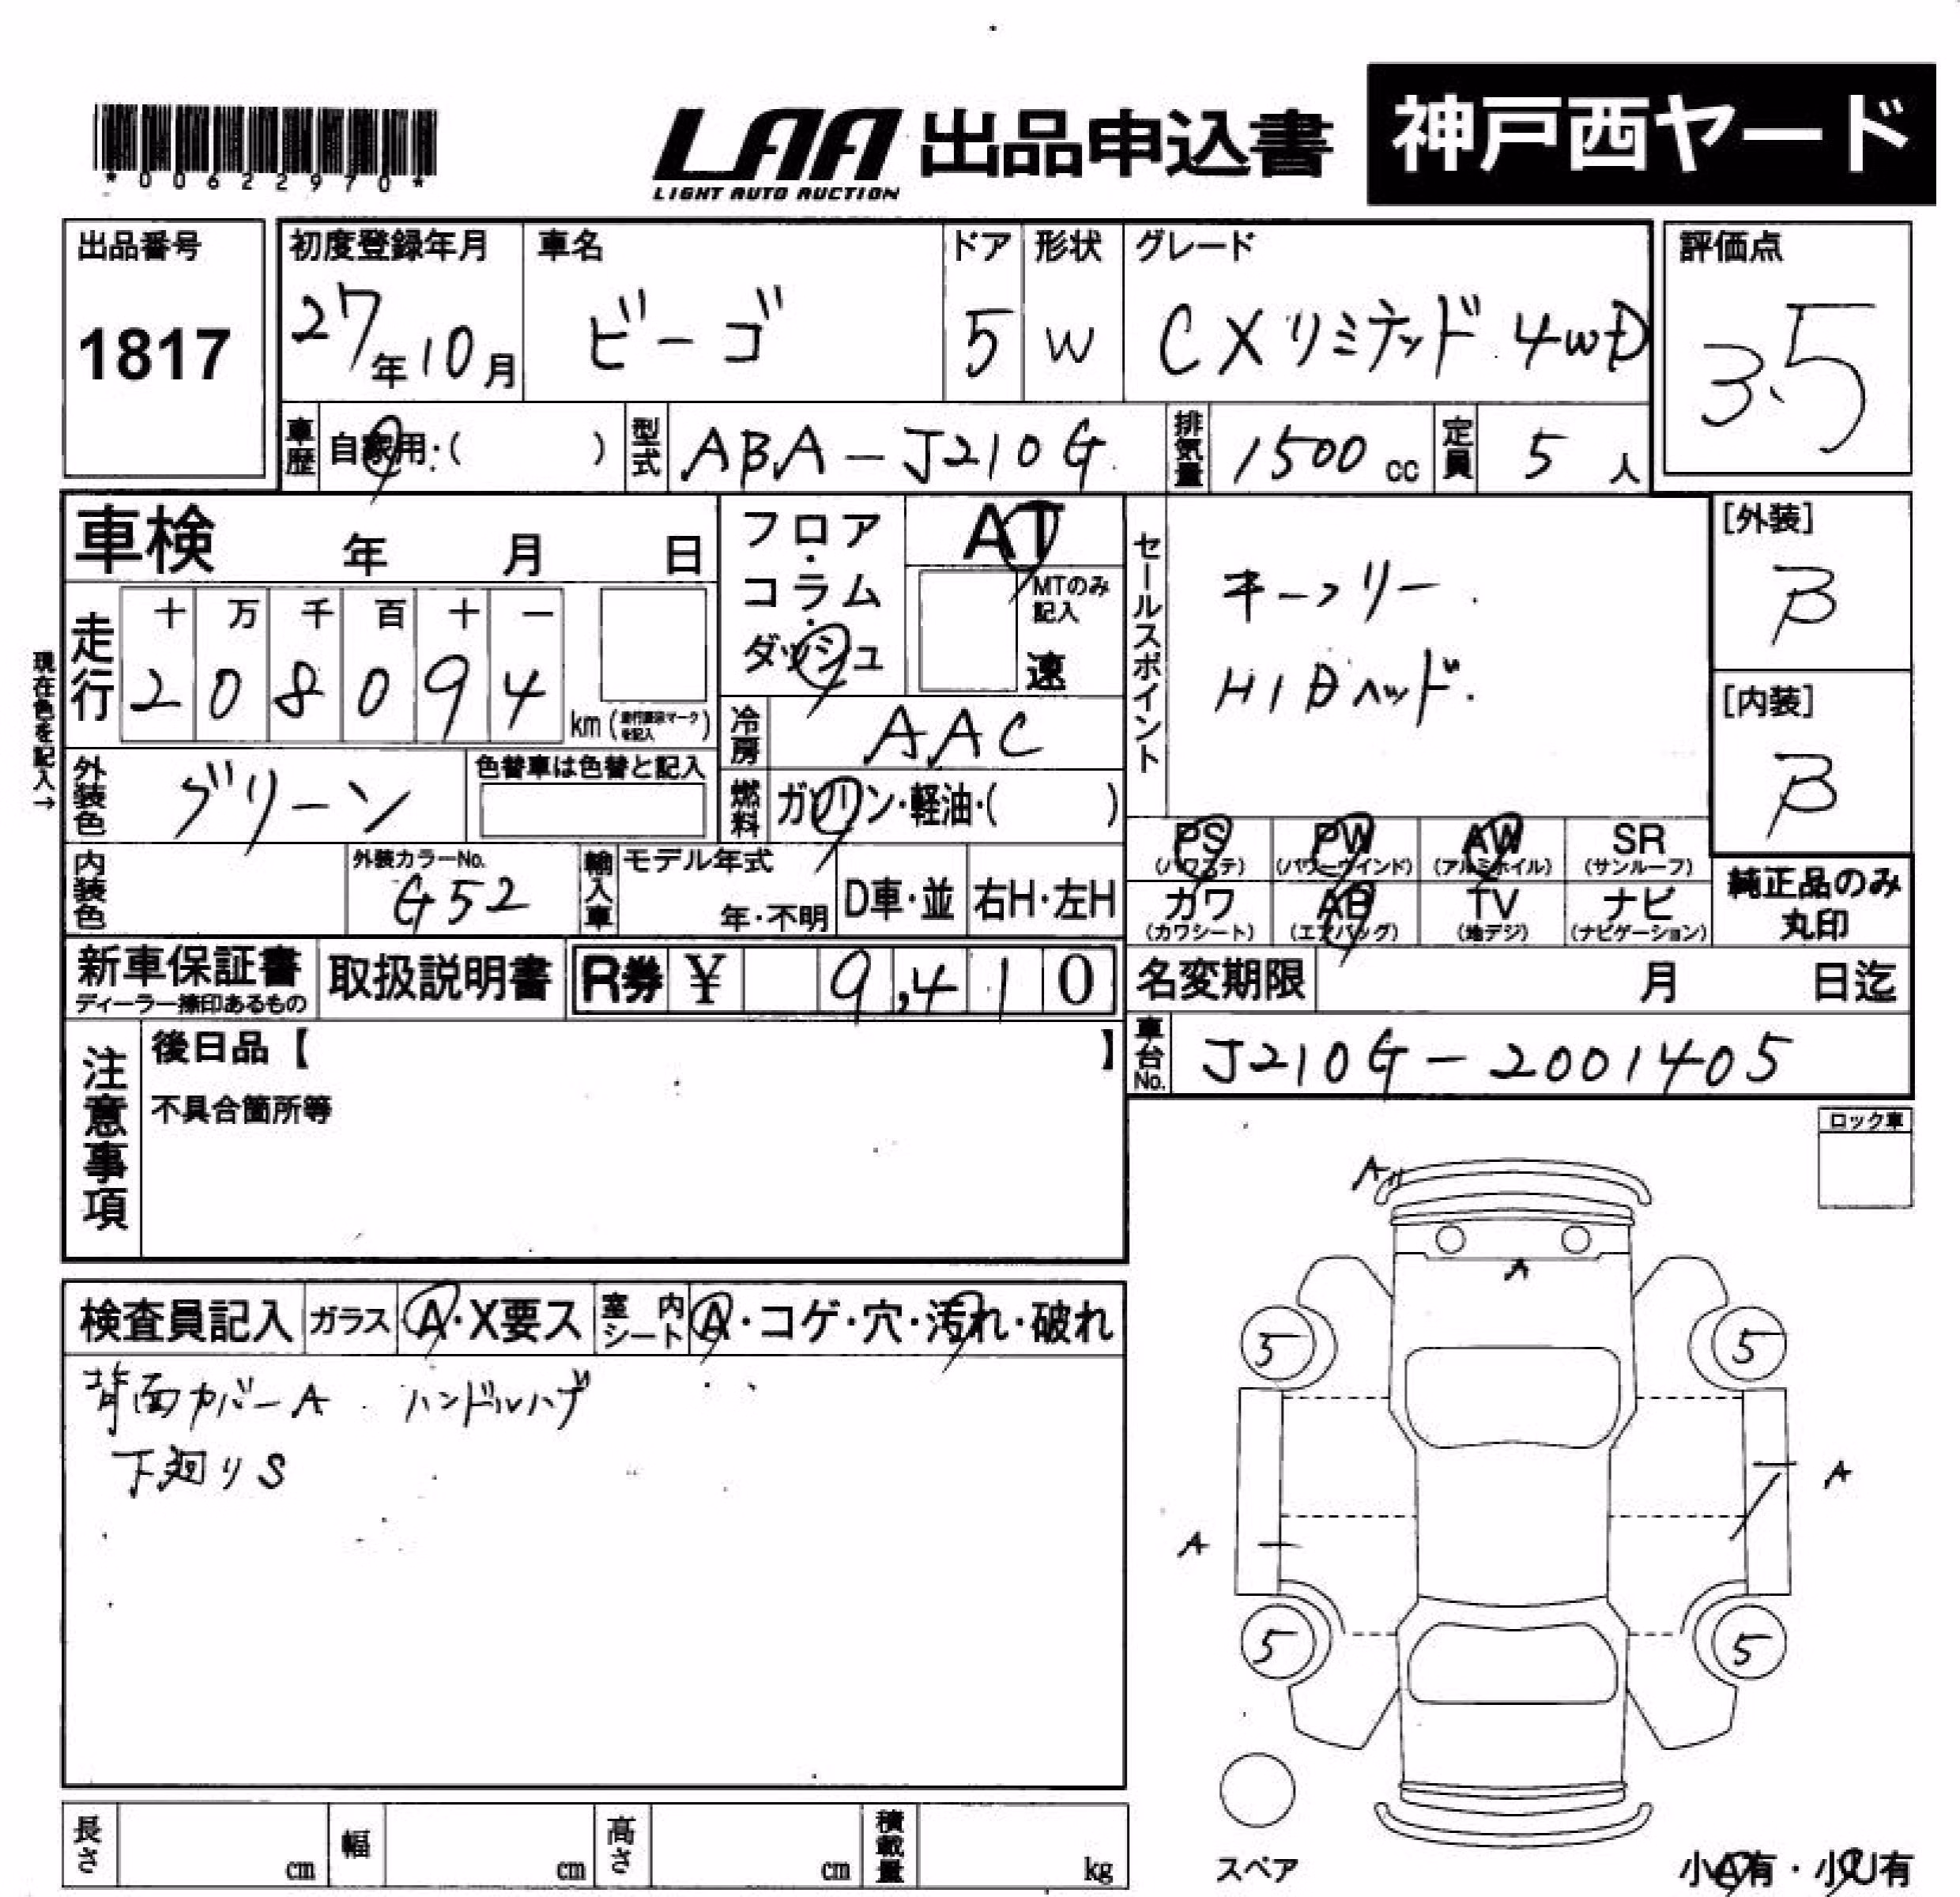 *00622970*
LAA 出品申込書 神戸西ヤード
LIGHT AUTO AUCTION
出品番号
1817
初度登録年月
27年10月
車名
ビーゴ
ドア
5
形状
W
グレード
CXリミテッド 4WD
評価点
3.5
車歴
自家用・( )
型式
ABA-J210G
排気量
1500cc
定員
5人
車検 年 月 日
フロア・コラム・ダッシュ
AT
MTのみ記入
速
セールスポイント
キーフリー.
HIDヘッド.
[外装]
B
[内装]
B
現在色を記入→
走行
十 万 千 百 十 一
2 0 8 0 9 4
km (走行表示マークを記入)
冷房
AAC
外装色
グリーン
色替車は色替と記入
燃料
ガソリン・軽油・( )
内装色
外装カラーNo.
G52
輸入車
モデル年式
年・不明
D車・並
右H・左H
PS
(パワステ)
PW
(パワーウインド)
AW
(アルミホイル)
SR
(サンルーフ)
カワ
(カワシート)
AB
(エアバッグ)
TV
(地デジ)
ナビ
(ナビゲーション)
純正品のみ
丸印
新車保証書
ディーラー捺印あるもの
取扱説明書
R券 ¥ 9,410
名変期限 月 日迄
車台No.
J210G-2001405
注意事項
後日品【 】
不具合箇所等
ロック車
検査員記入 ガラス A・X要ス 室内シート A・コゲ・穴・汚れ・破れ
背面カバーA ハンドルハゲ
下廻りS
A
A
5 5
A
A
5 5
スペア
小A有・小U有
長さ cm 幅 cm 高さ cm 積載量 kg